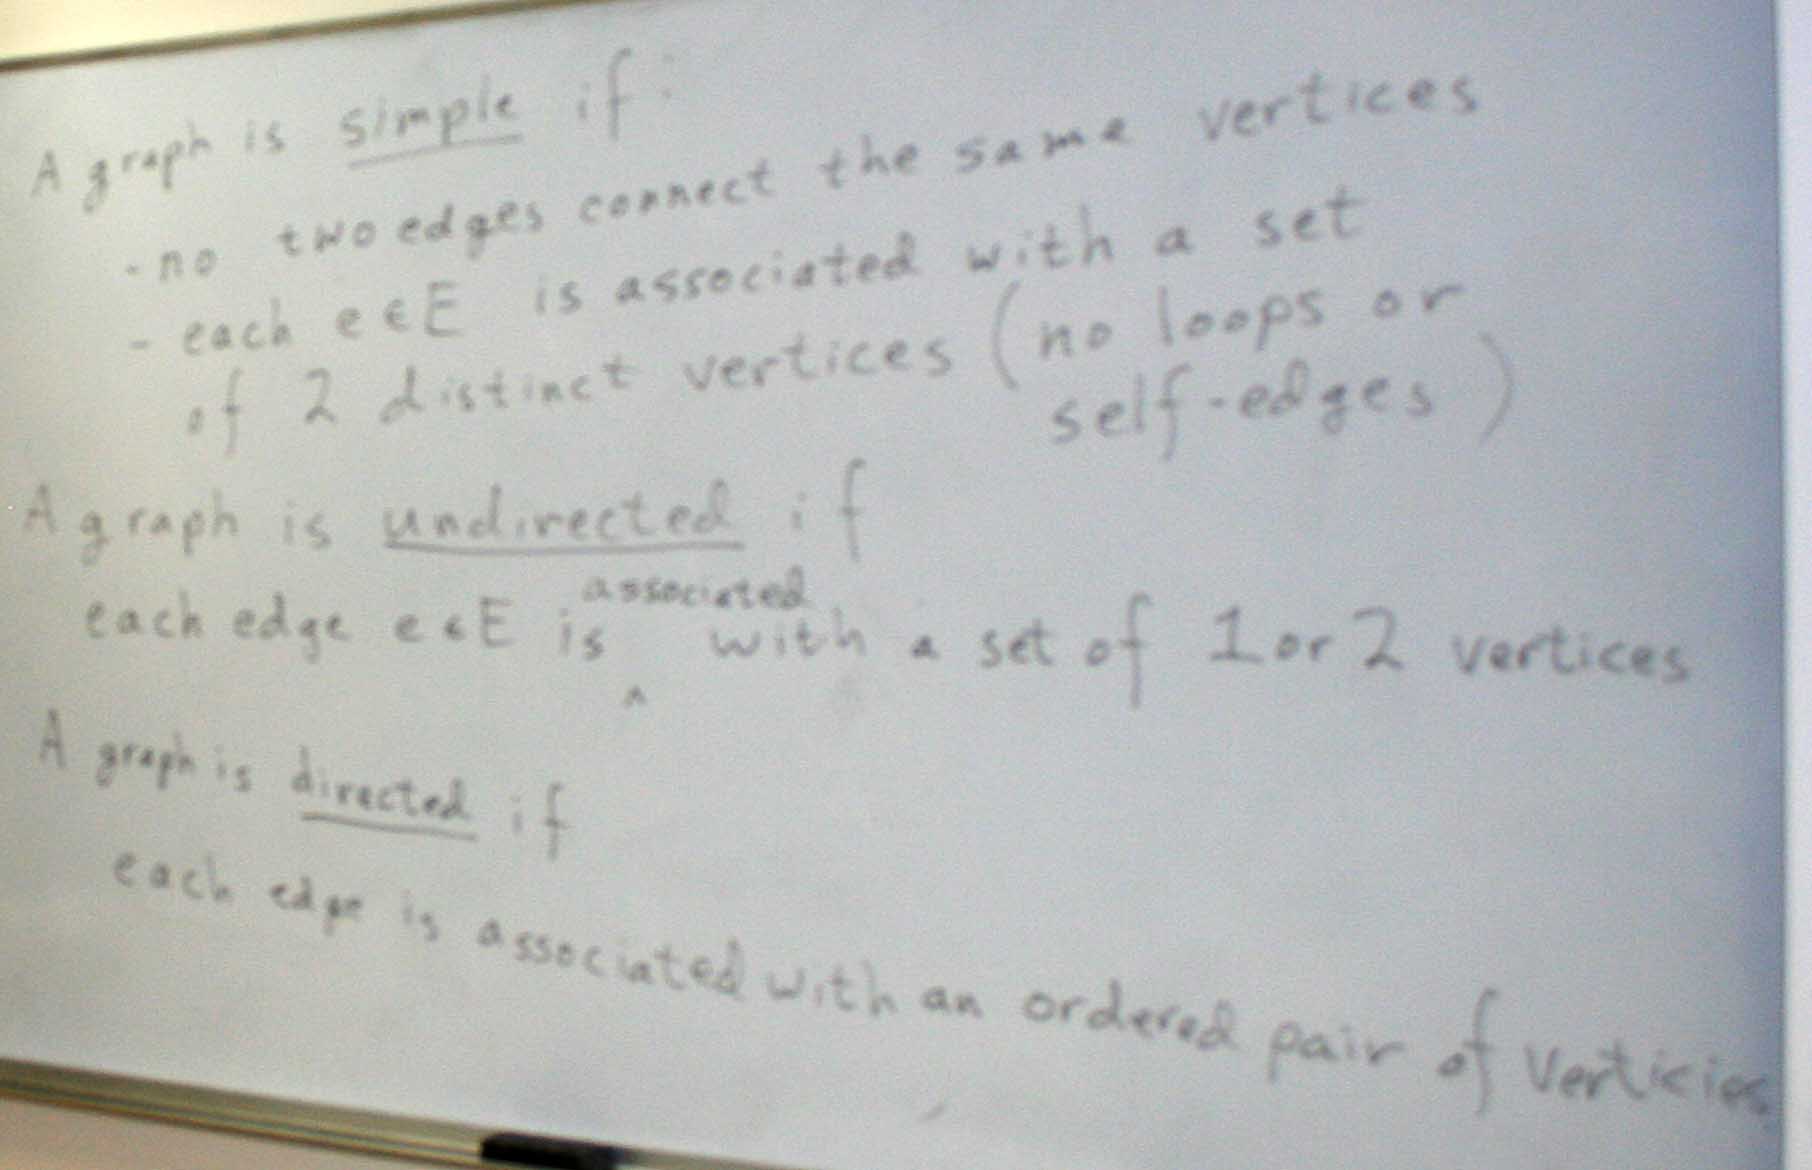 A graph is simple if:
- no two edges connect the same vertices
- each e ∈ E is associated with a set
of 2 distinct vertices (no loops or
self-edges)
A graph is undirected if
associated
each edge e ∈ E is ^ with a set of 1 or 2 vertices
A graph is directed if
each edge is associated with an ordered pair of verticies